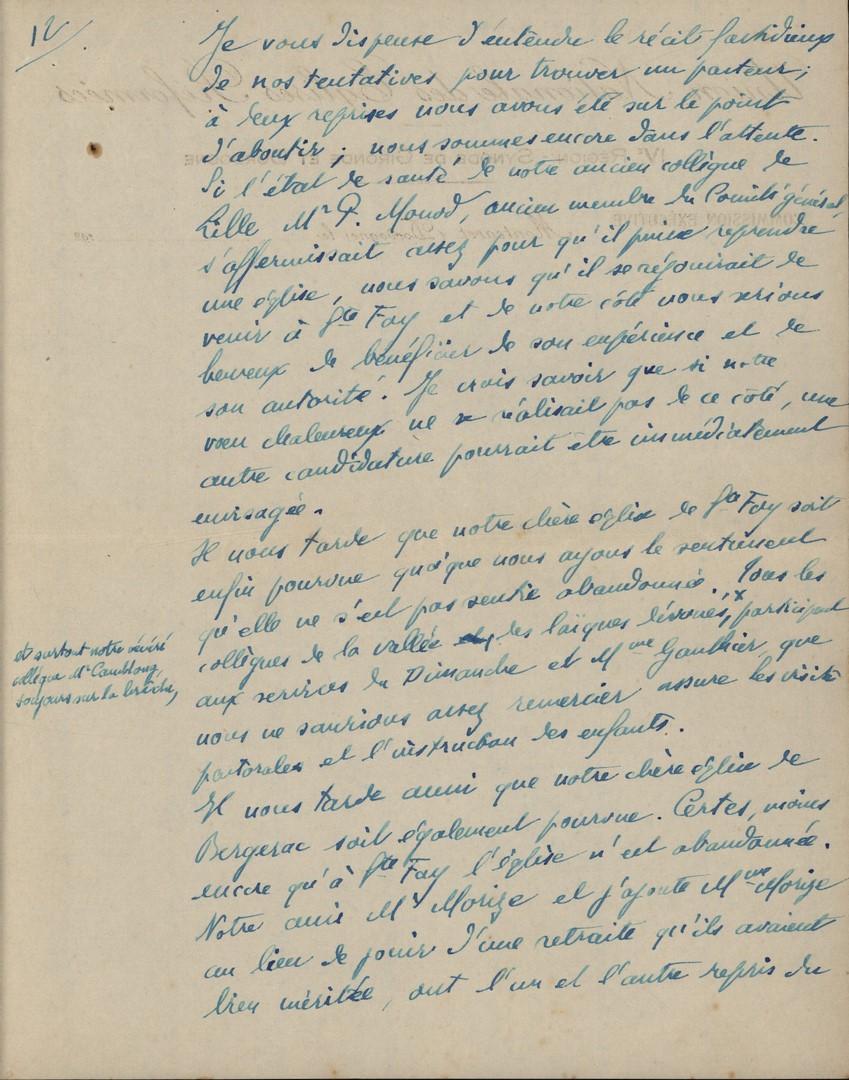 12
Je vous dispense d'entendre le récit fastidieux
de nos tentatives pour trouver un pasteur ;
à deux reprises nous avons été sur le point
d'aboutir ; nous sommes encore dans l'attente.
Si l'état de santé de notre ancien collègue de
Lille Mr P. Monod, ancien membre du Comité général
s'affermissait assez pour qu'il puisse reprendre
une église, nous savons qu'il se réjouirait de
venir à Ste Foy et de notre côté nous serions
heureux de bénéficier de son expérience et de
son autorité. Je crois savoir que si notre
vœu chaleureux ne se réalisait pas de ce côté, une
autre candidature pourrait être immédiatement
envisagée.
Il nous tarde que notre chère église de Ste Foy soit
enfin pourvue quoique nous ayons le sentiment
qu'elle ne s'est pas sentie abandonnée. Tous les
collègues de la vallée des laïques dévoués, x participent
et surtout notre vénéré
collègue Mr
toujours sur la brèche,
aux services du Dimanche et Mme Gauthier, que
nous ne saurions assez remercier assure les visites
pastorales et l'instruction des enfants.
Il nous tarde aussi que notre chère église de
Bergerac soit également pourvue. Certes, moins
encore qu'à Ste Foy l'église n'est abandonnée.
Notre ami Mr Morize et j'ajoute Mme Morize
au lieu de jouir d'une retraite qu'ils avaient
bien méritée, ont l'un et l'autre repris du